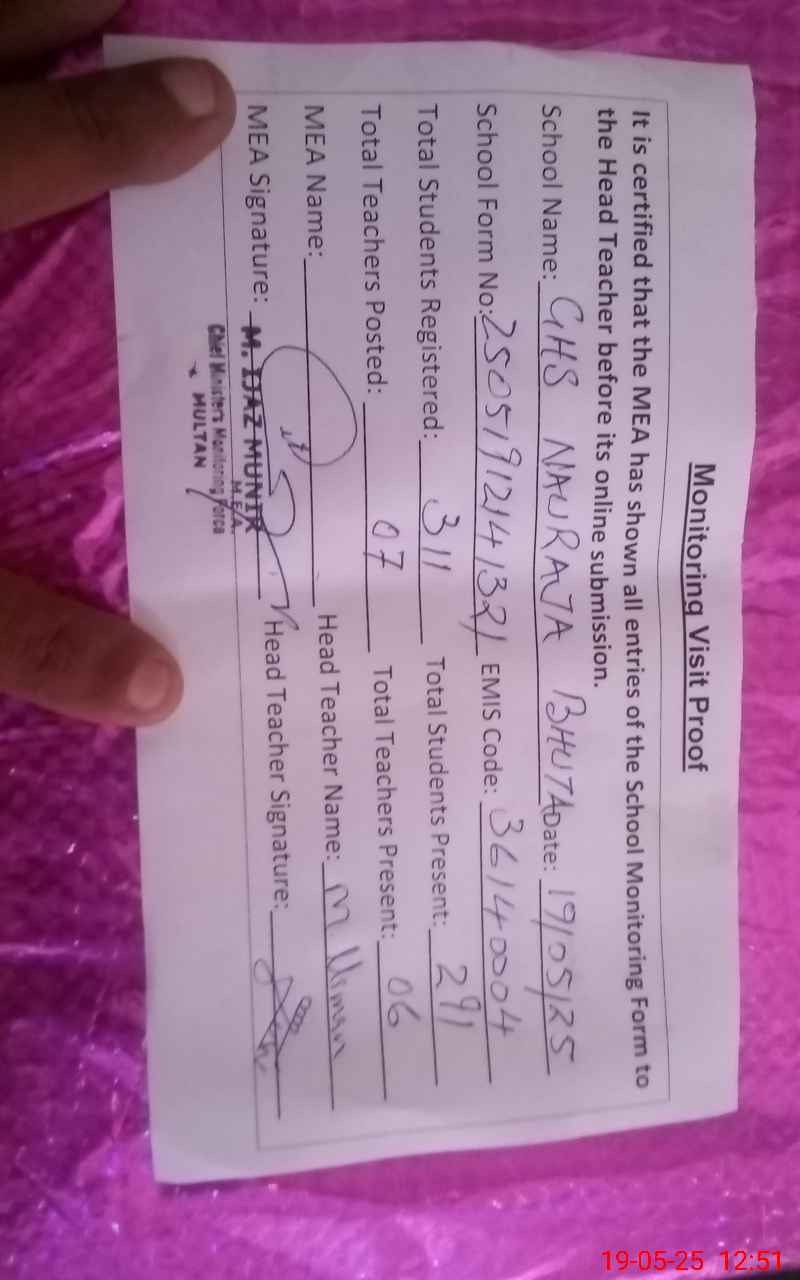 Monitoring Visit Proof
It is certified that the MEA has shown all entries of the School Monitoring Form to
the Head Teacher before its online submission.
School Name: GHS NAURAJA BHUTA Date: 19/05/25
School Form No: 25051912141321 EMIS Code: 36140004
Total Students Registered: 311 Total Students Present: 291
Total Teachers Posted: 07 Total Teachers Present: 06
MEA Name: Head Teacher Name: M Usman
MEA Signature: M. IJAZ MUNIR Head Teacher Signature:
M.E.A.
Chief Minister's Monitoring Force
MULTAN
19-05-25 12:51